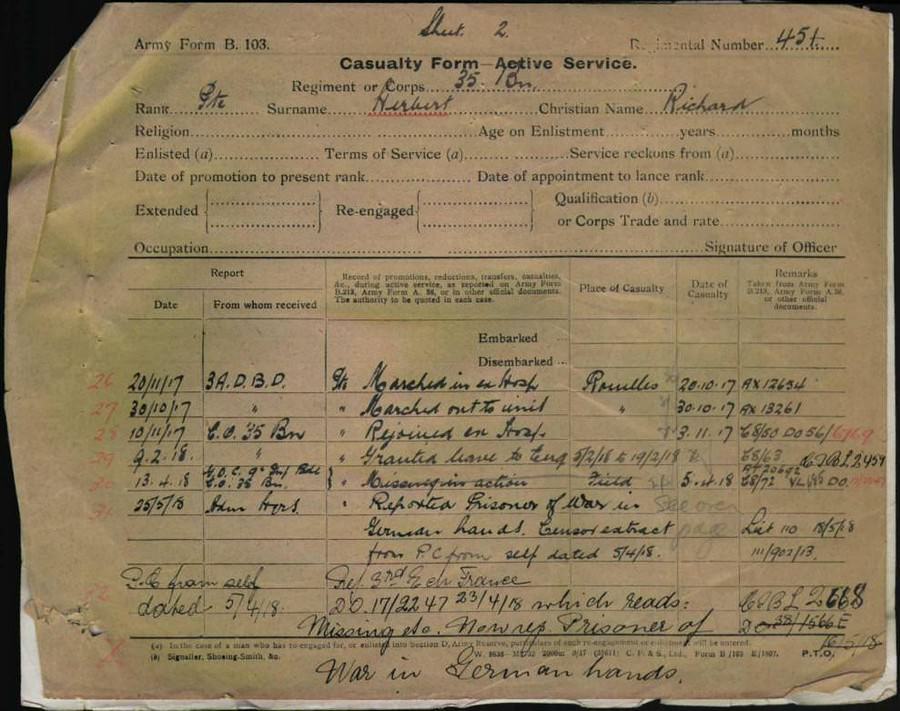 Sheet. 2.
Army Form B. 103. Regimental Number...451.
Casualty Form—Active Service.
Regiment or Corps 35 Bn.
Rank Pte Surname Herbert Christian Name Richard
Religion Age on Enlistment years months
Enlisted (a) Terms of Service (a) Service reckons from (a)
Date of promotion to present rank Date of appointment to lance rank
Extended Re-engaged Qualification (b)
or Corps Trade and rate
Occupation Signature of Officer
Report Record of promotions, reductions, transfers, casualties, &c., during active service, as reported on Army Form B.213, Army Form A. 36, or in other official documents. The authority to be quoted in each case. Place of Casualty Date of Casualty Remarks Taken from Army Form B.213, Army Form A.36, or other official documents.
Date From whom received
Embarked
Disembarked
26 20/11/17 3 A.D.B.D. Pte Marched in ex Hosp Rouelles 20.10.17 AX 12634
27 30/10/17 " " Marched out to unit " 30.10.17 AX 13261
28 10/11/17 C.O. 35 Bn " Rejoined ex Hosp 3.11.17 C8/50 DO 56/
29 9.2.18. " " Granted leave to Eng 5/2/18 to 19/2/18 C8/63 CIBL 2459
13.4.18 C.O. 35 Bn. " Missing in action Field 5.4.18 C8/72
25/5/18 Adm Hqrs. " Reported Prisoner of War in See over
German hands. Censor extract page List 110 18/5/18
from P.C from self dated 5/4/18. 111/902/13.
P.C from self Rep. 3rd Ech France
dated 5/4/18. D.O. 17/2247 23/4/18 which reads: CIBL 2668
Missing etc. Now rep. Prisoner of DO 38/1566E
16/5/18
(a) In the case of a man who has re-engaged for, or enlisted into Section D, Army Reserve, particulars of such re-engagement or enlistment will be entered.
(b) Signaller, Shoeing-Smith, &c. P.T.O.
War in German hands.